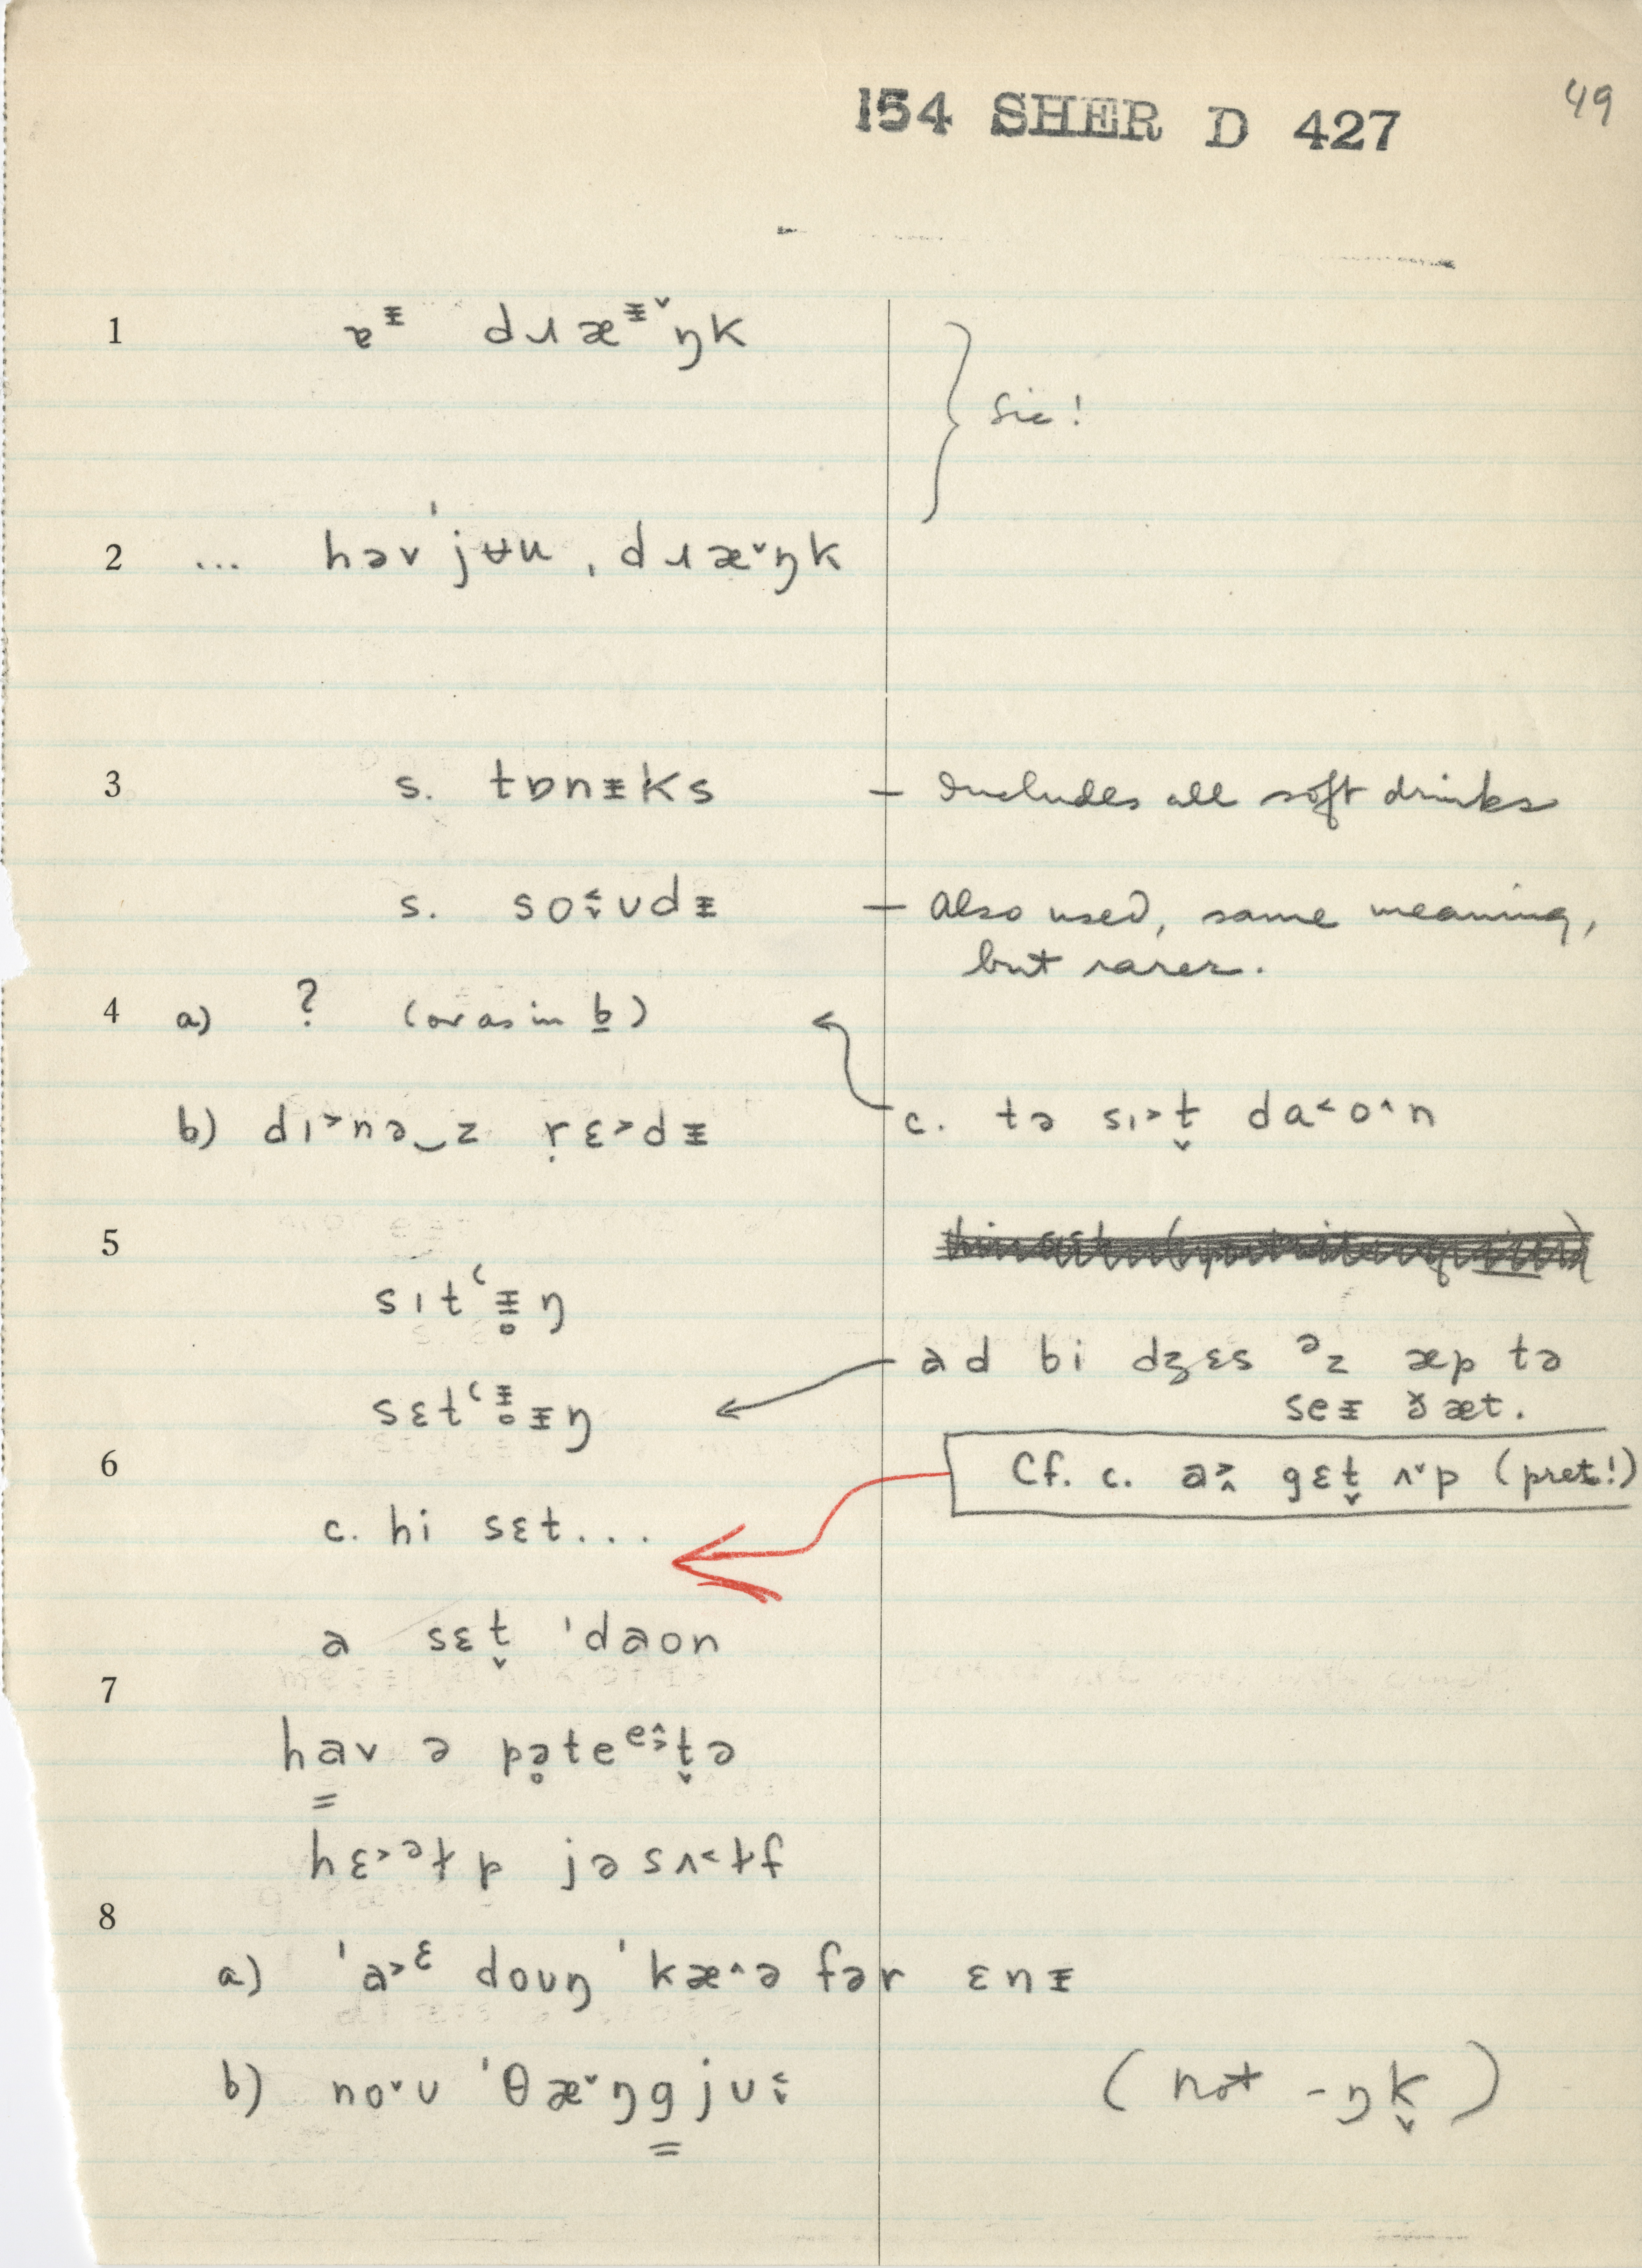 154 SHER D 427
49
1 ɐᵻ dɹæᵻ˅ŋk
} Sic!
2 ... həv ˈjʉu ˌdɹæ˅ŋk
3 s. tɒnᵻks – Includes all soft drinks
s. so˂˅ʊdᵻ – Also used, same meaning,
but rarer.
4 a) ? (or as in b)
b) dɪ˃nə‿z ṛɛ˃dᵻ
c. tə sɪ˃t̬ da˂o˄n
5
sɪtʿᵻ̥ŋ
sɛtʿᵻ̥ᵻŋ
ad bi dʒɛs ᵊz æp tə
seᵻ ðæt.
6
Cf. c. a˃˄ gɛt̬ ʌ˅p (pret!)
c. hi sɛt...
a sɛt̬ ˈdaon
7
hav ə pə̥teᵉ˄˃t̬ə
hɛ˃ᵊɫp jəsʌ˂ɫf
8
a) ˈa˃ᵋ doʊŋ ˈkæ˄ə fər ɛnᵻ
b) no˅ʊ ˈθæ˅ŋgjʊ˂˅ (not -ŋk̬)